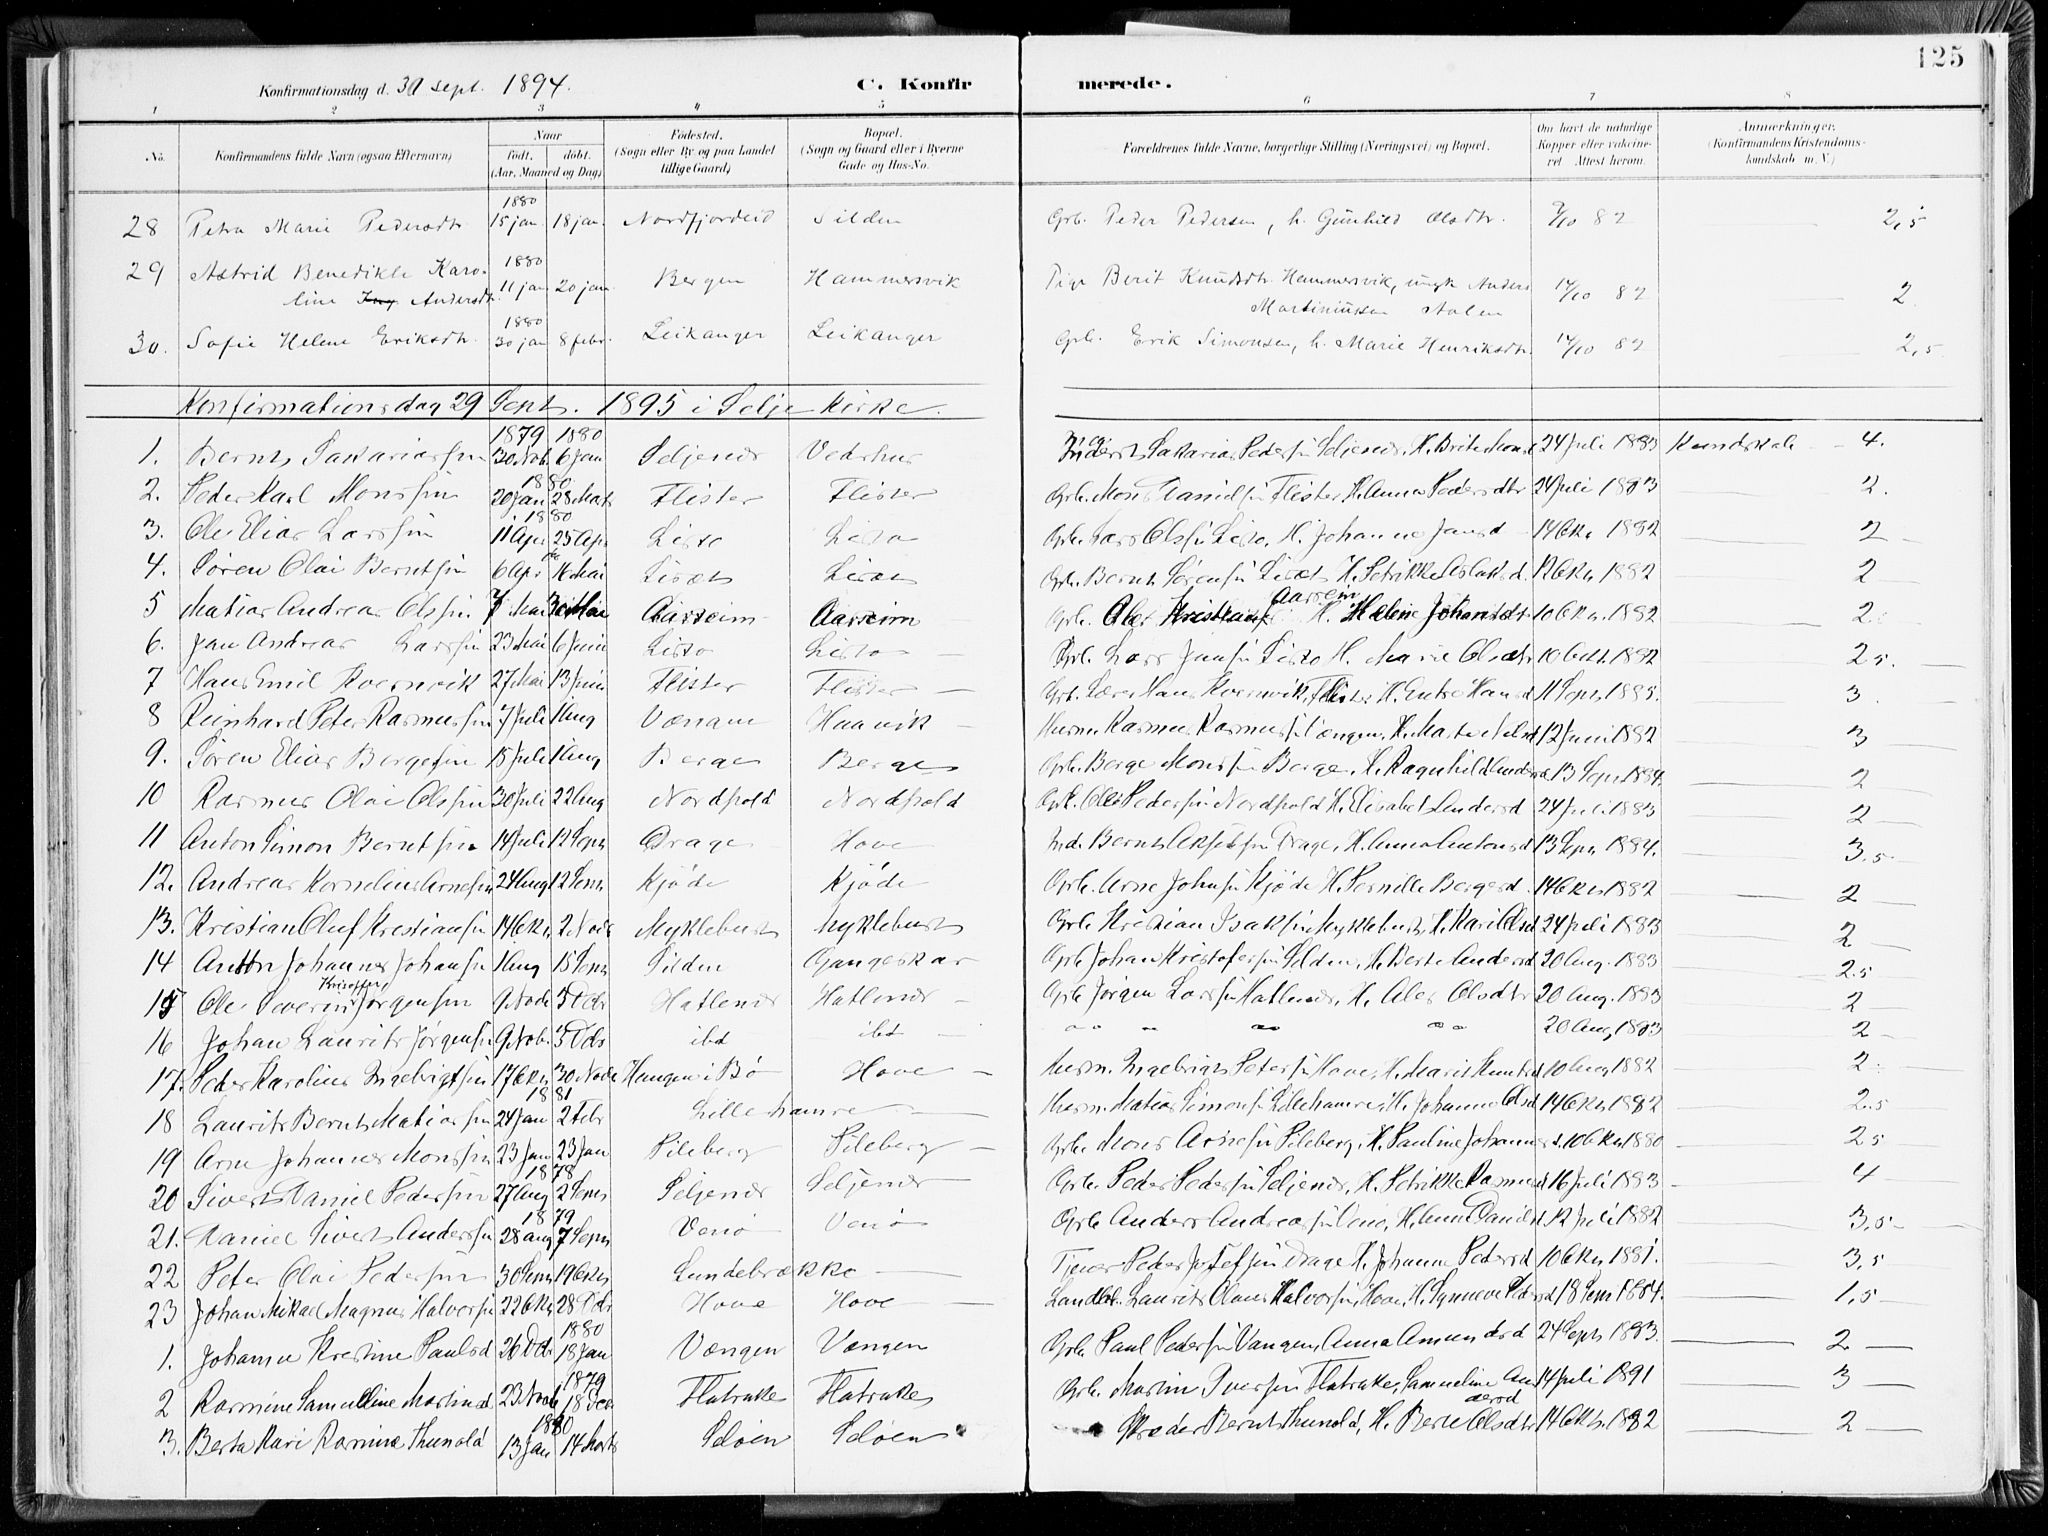 125
Konfirmationsdag d. 30 sept. 1894. C. Konfirmerede.
1 2 3 4 5 6 7 8
No. Konfirmandens fulde Navn (ogsaa Efternavn) Naar født. døbt. (Aar, Maaned og Dag) Fødested. (Sogn eller By og paa Landet tillige Gaard) Bopæl. (Sogn og Gaard eller i Byerne Gade og Hus-No. Forældrenes fulde Navne, borgerlige Stilling (Næringsvei) og Bopæl. Om havt de naturlige Kopper eller vakcineret. Attest herom. Anmærkninger. (Konfirmandens Kristendomskundskab m. V.)
1880
28 Petra Marie Pedersdtr. 15 jan. 18 jan. Nordfjordeid Silden Grb. Peder Pedersen, h. Gunhild Olsdtr. 9/10 82 2,5
1880
29 Astrid Benedikte Karoline Andersdtr. 11 jan. 20 jan. Bergen Hammersvik Pige Berit Knudsdtr. Hammersvik, ungk. Anders Martiniussen 14/10 82 2
1880
30. Sofie Helene Eriksdtr. 30 jan 8 febr. Leikanger Leikanger Grb. Erik Simonsen, h. Marie Henriksdtr. 14/10 82 2,5
Konfirmationsdag 29 Sept. 1895 i Selje Kirke.
1879 1880
1. Bernt Sakariassen 30 Nob. 6 Jan Seljenes Vedehus Inderst Sakarias Pedersen Seljenes, H. Brite 24 Juli 1883 Kundskab 4.
1880
2. Peder Karl Monssen 20 Jan 28 Mart Flister Flister Grb. Mons Danielsen Flister, H. Anna Pedersdtr 24 Juli 1883 2.
1880
3. Ole Elias Larssen 11 Apr 25 Apr Liset Liset Grb. Lars Olssen H. Johanne Jansd 14 Okt. 1882 2
4. Søren Olai Berntsen 6 Apr 16 Mai Liset Liset Grb. Bernt Sørensen Liset H. Petrikke Aslaksd. 12 Okt. 1882 2
5 Matias Andreas Olssen 7 Mai 30 Mai Aarseim Aarseim Grb. Aarseim H. Helene Johansdtr 10 Okt. 1882 2.
6. Jan Andreas Larssen 23 Mai 6 Juni Grb. Lars Janssen H. Marie Olsdtr 10 Oct. 1882 2,5.
7 Hans Emil Kvernvik 27 Mai 13 Juni Flister Flister Grb. Lærer Hans Kvernvik, Flister H. Hansd 11 Sept. 1885. 3.
8 Reinhard Peter Rasmussen 7 Juli 1 Aug Haavik Husm. Rasmus Rasmussen H. Marte Nilsd 12 Juni 1882 3
9. Søren Elias Bergesen 15 Juli 1 Aug Berge Berge Grb. Berge Monssen Berge, H. Ragnhild Andersd 13 Sept. 1884. 2
10 Rasmus Olai Olssen 30 Juli 22 Aug Nordpold Nordpold Grb. Ole Pedersen Nordpold H. Elisabet Andersd 24 Juli 1883 2
11 Anton Simon Berntsen 14 Juli 12 Sept Drage Hove Ind. Bernt Drage, H. Anna Antonsd 13 Sept. 1884. 3,5
12. Andreas Kornelius Arnesen 24 Aug 12 Sept. Kjøde Kjøde Grb. Arne Johnsen Kjøde H. Pernille Bergesd. 14 Okt. 1882 2
13. Kristian Oluf Kristiansen 14 Okt. 2 Nobr Myklebust Myklebust Grb. Kristian Isaksen Myklebust, H. Kari Olsd 24 Juli 1883 2
14 Anton Johannes Johansen 1 Aug 15 Sept. Silden Gangeskar Grb. Johan Kristofersen Silden, H. Berte Andersd 20 Aug. 1883 2,5
15 Ole Severin Kristoffer Jørgensen 9 Nobr 5 Dcbr Hatlenes Hatlenes Grb. Jørgen Larssen Hatlenes, H. Ales Olsdtr 20 Aug. 1883 2
16 Johan Laurits Jørgensen 9 Nobr. 5 Dcbr ibd ibd " " " " 20 Aug, 1883 2
17. Peder Karolius Ingebrigtsen 17 Okt. 30 Nobr Haugen i Bø Hove Husm. Ingebrigt Petersen Hove, H. Marit Knutsd 10 Aug 1882 2.
1881
18 Laurits Bernt Matiassen 24 Jan 2 Febr Lillehamre Husm. Matias Simonsen Lillehamre, H. Johanne Olsd 14 Okt. 1882 2,5
19 Arne Johannes Monssen 23 Jan 23 Jan Pileberg Pileberg Grb. Mons Arnesen Pileberg, H. Pauline Johannesd. 10 Okt. 1880 2,5
1878
20 Sivert Daniel Pedersen 27 Aug 2 Sept. Seljenes Seljenes Grb. Peder Pedersen Seljenes, H. Petrikke Rasmusd 16 Juli 1883 4
1879
21. Daniel Sivert Anderssen 28 aug 7 Sept. Venø Venø Grb Anders Andreassen Venø, H. Anne Danielsd 12 Juli 1882 3,5
22 Peter Olai Pedersen 30 Sept. 19 Okt. Lundebrække Tjener Peder Drage H. Johanne Pedersd 10 Okt. 1881. 3,5
23 Johan Mikael Magnus Halvorsen 22 Okt. 28 Dcbr Hove Hove Landhl. Laurits Olaus Halvorsen, Hove, H. Synneve 18 Sept 1884. 1,5
1880
1. Johanne Kristine Paulsd 26 Dcbr 18 Jan Vængen Vængen Grb. Paul Pedersen Vangen, Anna Amundsd 24 Sept. 1883. 2
1879
2 Rasmine Samueline Martinsd 23 Nobr 18 Dec. Flatrake Flatrake Grb. Martin Iversen Flatrake, Samueline Andersd 14 Juli 1891 3
1880
3. Berta Kari Rasmine Thunold 13 Jan 14 Mart Seløen Seløen Bernt Thunold, H. Berte Olsdtr 14 Okt. 1882 2